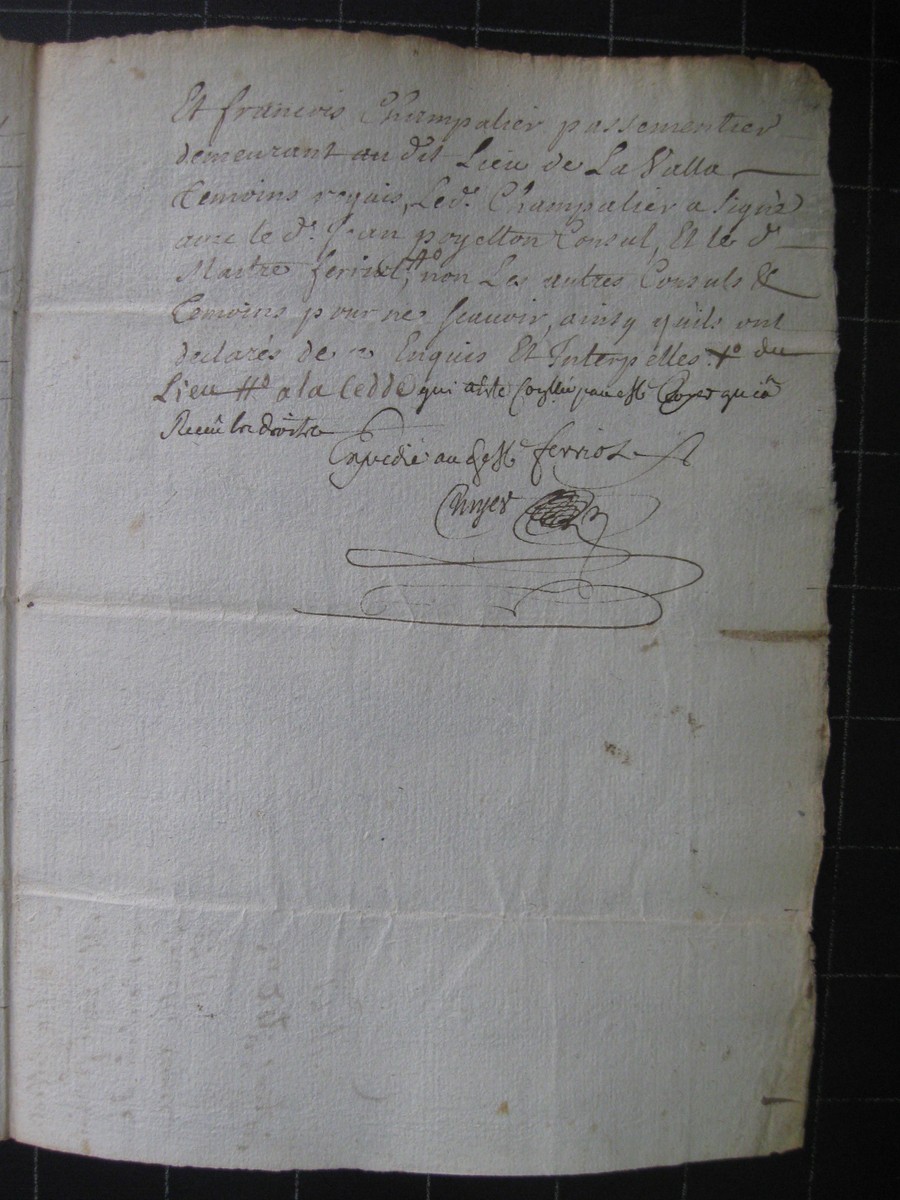 Et francois Champalier passementier
demeurant au dit Lieu de La Valla
temoins requis, Led. Champalier a signé
avec le d. Jean poyetton Consul, Et le d.
Maitre ferriol, #o non Les autres Consuls &
temoins pour ne scauoir, ainsy qu'ils ont
declarés de ce Enquis Et Interpelles. +o du
Lieu #o a la Cedde qui
Receu les droits
Expedié au ferriol